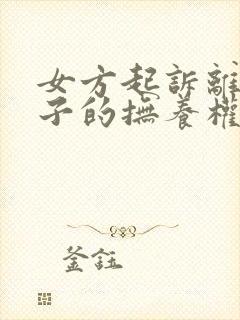 女方起訴離
子的撫養權
釜鈺